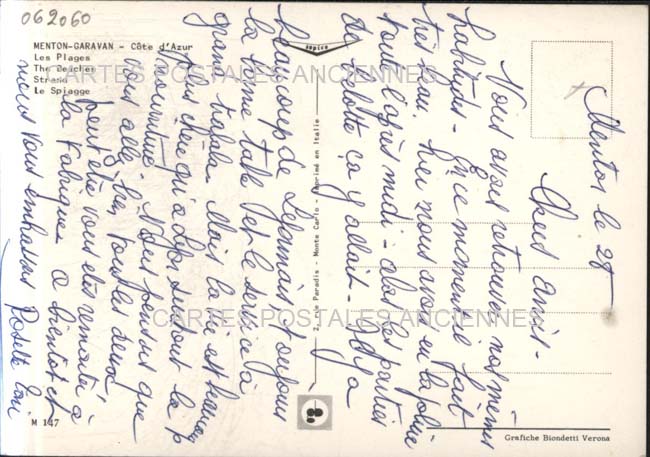 062060
MENTON-GARAVAN - Côte d'Azur
Les Plages
The Beaches
Strand
Le Spiagge
CARTES POSTALES ANCIENNES
sapico
2, rue Paradis - Monte Carlo - Imprimé en Italie
CARTES POSTALES ANCIENNES
M 147
Grafiche Biondetti Verona
Menton le 28
Chers amis -
Nous avons retrouvé nos mêmes
habitudes - En ce moment il fait
très beau. hier nous avons eu la pluie
tout l'après midi - alors les parties
de belotte ça y allait - Il y a
beaucoup de Lyonnais toujours
la bonne table et le service à
grand tralala. Mais la vie est beaucoup
plus chère qu'à
nourriture. Nous pensons que
vous allez bien tous les deux
peut être vous êtes remonté à
la Fabrique. à bientôt et
nous vous embrassons